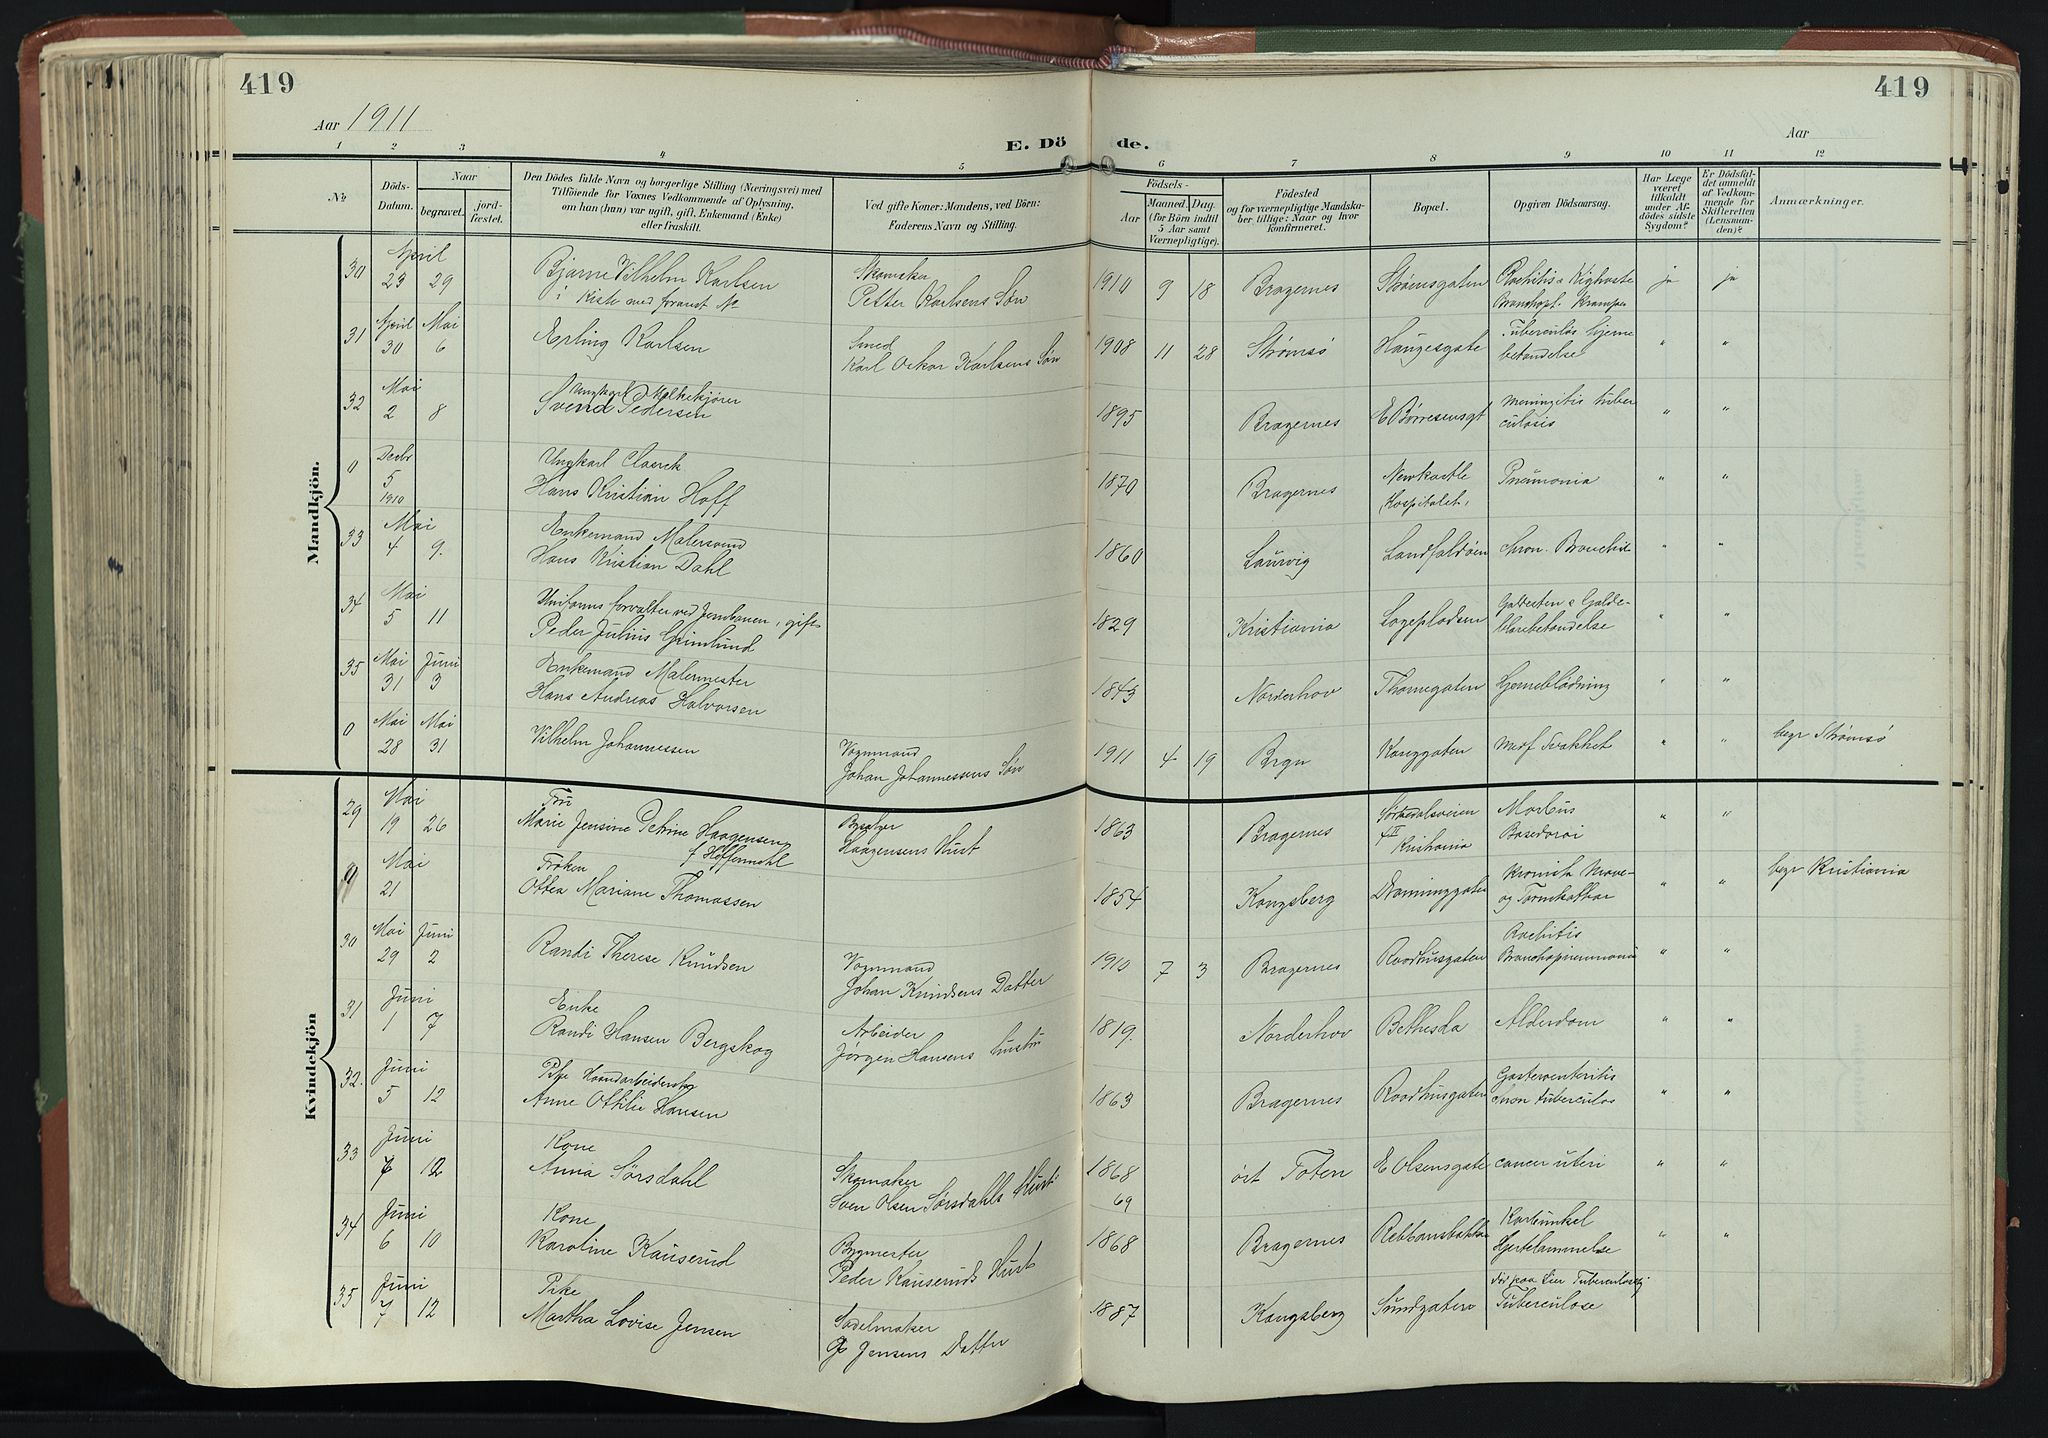 419
419
Aar 1911
E. Döde.
Aar
1 2 3 4 5 6 7 8 9 10 11 12
№
Döds-Datum.
Naar
begravet.
jordfæstet.
Den Dödes fulde Navn og borgerlige Stilling (Næringsvei) med
Tilföiende for Voxnes Vedkommende af Oplysning,
om han (hun) var ugift, gift, Enkemand (Enke)
eller fraskilt.
Ved gifte Koner: Mandens, ved Börn:
Faderens Navn og Stilling.
Födsels-
Aar
Maaned. Dag.
(for Börn indtil
5 Aar samt
Værnepligtige).
Födested
og for værnepligtige Mandskaber tillige: Naar og hvor
konfirmeret.
Bopæl.
Opgiven Dödsaarsag.
Har Læge
været
tilkaldt
under Afdödes sidste
Sygdom?
Er Dödsfaldet anmeldt
af Vedkommende for
Skifteretten
(Lensmanden)?
Anmærkninger.
Mandkjön.
30 April 23 29 Bjarne Vilhelm Karlsen
i Kiste med forannt №
Skomaker
Petter Karlsens Søn
1910 9 18 Bragernes Strømsgaten Rachitis Kighoste
Bronchopt. Krampe
ja ja
31 April 30 Mai 6 Erling Karlsen
Smed
Karl Oskar Karlsens Søn
1908 11 28 Strømsø Haugesgate Tuberculøs Hjerne
betændelse " "
32 Mai 2 8 Ungkarl Melkekjører
Svend Pedersen
1895 Bragernes E Børresensgt meningitis tuber
culosis " "
0 Decbr 5 1910 Ungkarl Clærck
Hans Kristian Hoff
1870 Bragernes Newkastle
Hospitalet, Pneumonia " "
33 Mai 4 9. Enkemand Malersvend
Hans Kristian Dahl
1860 Laurvig Landfaldøen chron. Bronchit " "
34 Mai 5 11 Uniforms forvalter ved Jernbanen, gift
Peder Julius Grimlund
1829 Kristiania Logepladsen Galdesten & Galde-
blærebetændelse " "
35 Mai 31 Juni 3 Enkemand Malermester
Hans Andreas Halvorsen
1843 Norderhov Thomegaten Hjerneblødning " "
0 Mai 28 Mai 31 Vilhelm Johannessen
Vognmand
Johan Johannessens Søn
1911 4 19 Brgn Konggaten Medf Svakhet " " begr Strømsø
Kvindekjön
29 Mai 19 26 Fru
Marie Jensine Petrine Haagensen
f Hoffenmohl
Haagensens Hust
1863 Bragernes Sørkedalsveien
Kristiania
Morbus
Basedovoi " "
0 Mai 21 Frøken
Otten Mariane Thomassen
1854 Kongsberg Dronninggaten Kronisk Mave-
og Tarmkatthar " " begr Kristiania
30 Mai 29 Juni 2 Randi Therese Knudsen
Vognmand
Johan Knudsens Datter
1910 7 3 Bragernes Raadhusgaten Rachitis
Bronchopneumonia " "
31 Juni 1 7 Enke
Randi Hansen Bergskog
Arbeider
Jørgen Hansens hustru
1819. Norderhov Bethesda Alderdom " "
32. Juni 5 12 Pike Haandarbeiderske
Anne Ottilie Hansen
1863 Bragernes Raadhusgaten Gasteroenteritis
chron tuberculos " "
33 Juni 7 12 Kone
Anna Sørsdahl
Skomaker
Sven Olsen Sørsdahls Hust
1868
69
øst Toten E Olsensgate cancer uteri " "
34 Juni 6 10 Kone
Karoline Kauserud
Bygmester
Peder Kauseruds Hust
1868 Bragernes Rebbansbakken Karbunkel
Hjertelammelse " "
35 Juni 7 12 Pike
Martha Lovise Jensen
Sadelmaker
Jensens Datter
1887 Kongsberg Sundgaten død paa Lier
Tuberculose